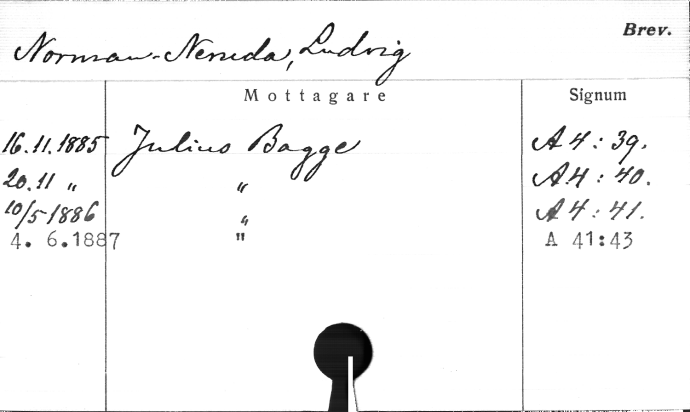 Brev.
Norman-Neruda, Ludvig
Mottagare Signum
16.11.1885 Julius Bagge A 4 : 39.
20.11 „ „ A 4 : 40.
10/5 1886 „ A 4 : 41.
4. 6.1887 " A 41:43